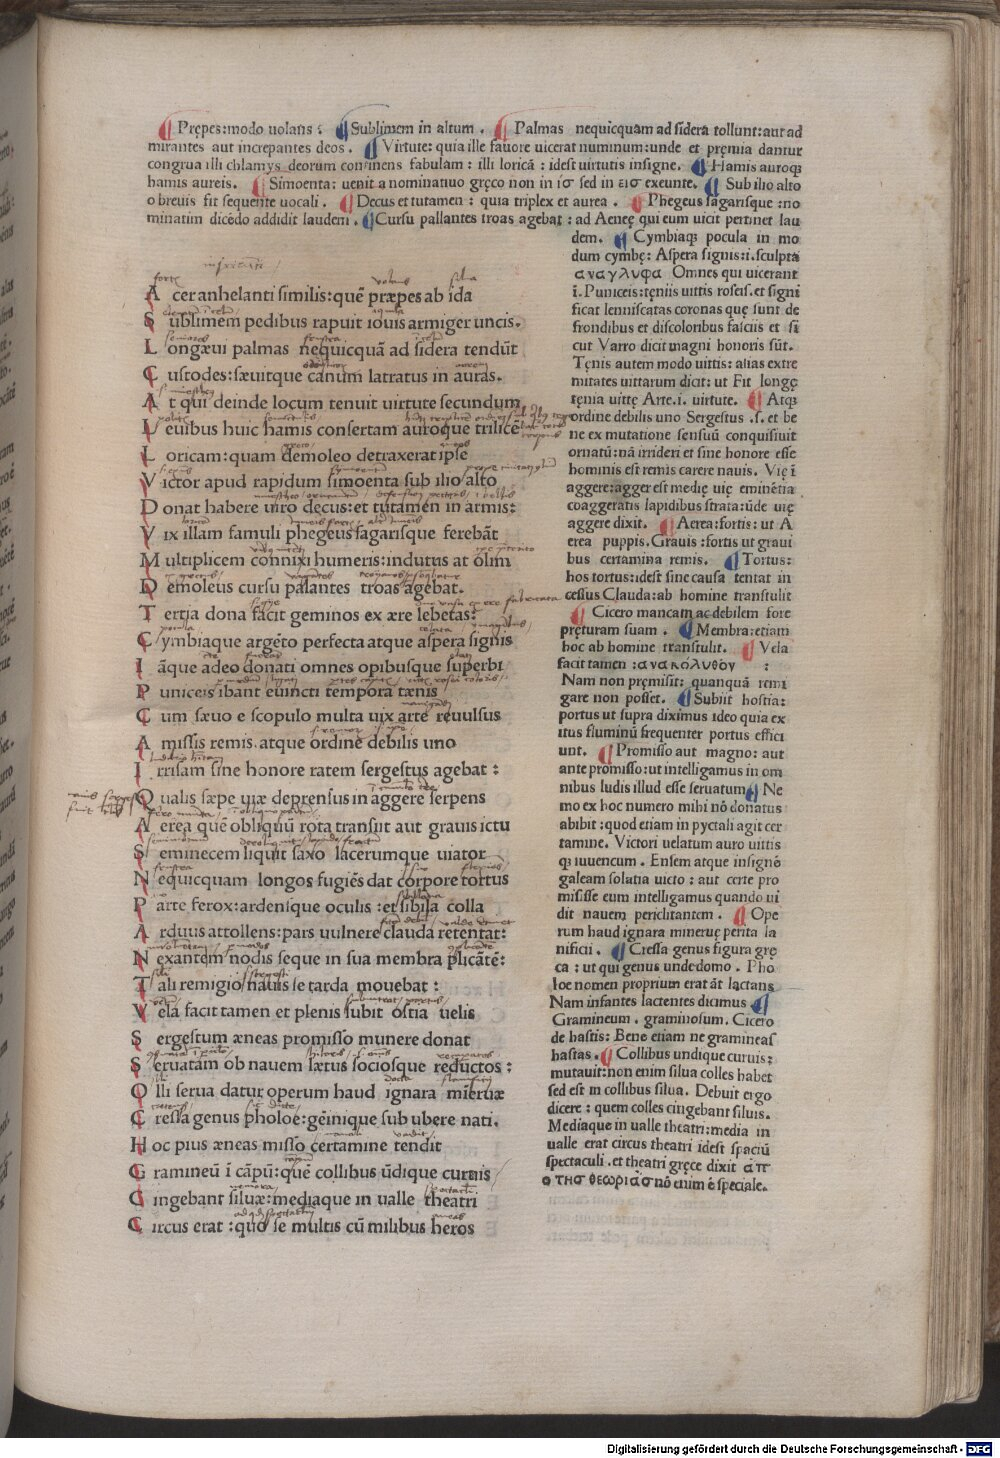 Prępes: modo uolans : Sublimem in altum . Palmas nequicquam ad sidera tollunt: aut ad
mirantes aut increpantes deos . Virtute: quia ille fauore uicerat numinum: unde et pręmia dantur
congrua illi chlamys deorum continens fabulam : illi loricā : idest uirtutis insigne. Hamis auroq;
hamis aureis. Simoenta: uenit a nominatiuo gręco non in ισ sed in εισ exeunte. Sub ilio alto
o breuis fit sequente uocali. Decus et tutamen : quia triplex et aurea . Phegeus sagarisque : no
minatim dicēdo addidit laudem. Cursu pallantes troas agebat : ad Aenęę qui eum uicit pertinet lau
dem. Cymbiaq; pocula in mo
dum cymbę: Aspera signis: i. sculpta
αναγλυφα Omnes qui uicerant
ī. Puniceis: tęniis uittis roseis. et signi
ficat lenniscatas coronas quę sunt de
frondibus et discoloribus fasciis et si
cut Varro dicit magni honoris sūt.
Tęnis autem modo uittis: alias extre
mitates uittarum dicit: ut Fit longę
tęnia uittę Arte. i. uirtute. Atq;
ordine debilis uno Sergestus .s. et be
ne ex mutatione sensuū conquisiuit
ornatū: nā irrideri et sine honore esse
hominis est remis carere nauis. Vię ī
aggere: agger est medię uię eminētia
coaggeratis lapidibus strata: ūde uię
aggere dixit. Aerea: fortis: ut A
erea puppis. Grauis : fortis ut graui
bus certamina remis. Tortus:
hos tortus: idest sine causa tentat in
cessus Clauda: ab homine transtulit
Cicero mancam ac debilem fore
pręturam suam . Membra: etiam
hoc ab homine transtulit. Vela
facit tamen : ανακολυθον :
Nam non pręmisit: quanquā remi
gare non posset. Subiit hostia:
portus ut supra diximus ideo quia ex
itus fluminū frequenter portus effici
unt. Promisso aut magno: aut
ante promisso: ut intelligamus in om
nibus ludis illud esse seruatum Ne
mo ex hoc numero mihi nō donatus
abibit : quod etiam in pyctali agit cer
tamine. Victori uelatum auro uittis
q; iuuencum . Ensem atque insignē
galeam solatia uicto : aut certe pro
misisse eum intelligamus quando ui
dit nauem periclitantem . Ope
rum haud ignara mineruę perita la
nificii . Cressa genus figura grę
ca : ut qui genus unde domo . Pho
loe nomen proprium erat āt lactans
Nam infantes lactentes dicimus
Gramineum . graminosum. Cicero
de hastis: Bene etiam ne gramineas
hastas . Collibus undique curuis:
mutauit: non enim silua colles habet
sed est in collibus silua. Debuit ergo
dicere : quem colles cingebant siluis.
Mediaque in ualle theatri: media in
ualle erat circus theatri idest spaciū
spectaculi . et theatri gręce dixit απ
ο της θεωριασ nō enim ē speciale.
A cer anhelanti similis: quē præpes ab ida
S ublimem pedibus rapuit iouis armiger uncis.
L ongæui palmas nequicquā ad sidera tendūt
C ustodes: sæuitque canum latratus in auras.
A t qui deinde locum tenuit uirtute secundum
L euibus huic hamis consertam auroque trilicē
L oricam: quam demoleo detraxerat ipse
V ictor apud rapidum simoenta sub ilio alto
D onat habere uiro decus: et tutamen in armis:
V ix illam famuli phegeus sagarisque ferebāt
M ultiplicem connixi humeris: indutus at olim
D emoleus cursu palantes troas agebat.
T ertia dona facit geminos ex ære lebetas:
C ymbiaque argēto perfecta atque aspera signis
I āque adeo donati omnes opibusque superbi
P uniceis ibant euincti tempora tænis
C um sæuo e scopulo multa uix arte reuulsus
A missis remis. atque ordine debilis uno
I rrisam sine honore ratem sergestus agebat :
Q ualis sæpe uiæ deprensus in aggere serpens
A erea quē obliquū rota transiit aut grauis ictu
S eminecem liquit saxo lacerumque uiator
N equicquam longos fugiēs dat corpore tortus
P arte ferox: ardensque oculis : et sibila colla
A rduus attollens: pars uulnere clauda retentat:
N exantem nodis seque in sua membra plicātē:
T ali remigio nauis se tarda mouebat :
V ela facit tamen et plenis subit ostia uelis
S ergestum æneas promisso munere donat
S eruatam ob nauem lætus sociosque reductos :
O lli serua datur operum haud ignara mieruæ
C ressa genus pholoe: geīnique sub ubere nati.
H oc pius æneas misso certamine tendit
G ramineū ī cāpū: quē collibus ūdique curuis
C ingebant siluæ: mediaque in ualle theatri
C ircus erat : quo se multis cū milibus heros
Digitalisierung gefördert durch die Deutsche Forschungsgemeinschaft - DFG